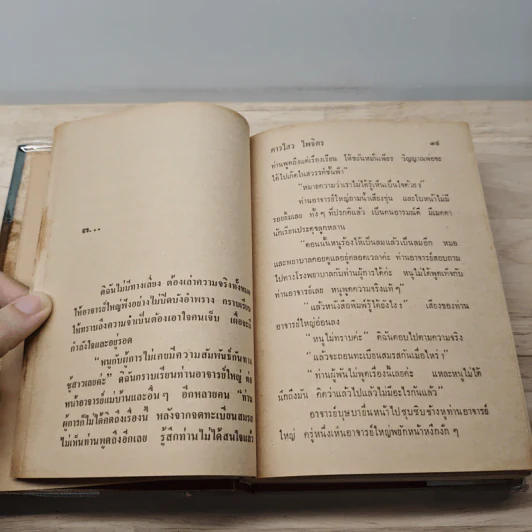 ๒๖...
ดิฉันไม่มีทางเลี่ยง ต้องเล่าความจริงทั้งหมด
ให้อาจารย์ใหญ่ฟังอย่างไม่ปิดบังอำพราง กราบเรียน
ให้ทราบถึงความจำเป็นต้องเอาใจคนเจ็บ เผื่อจะมี
กำลังใจและอยู่รอด
"หนูกับผู้การไม่เคยมีความสัมพันธ์กันทาง
ชู้สาวเลยค่ะ" ดิฉันกราบเรียนท่านอาจารย์ใหญ่ ต่อ
หน้าอาจารย์แม่บ้านและอื่น ๆ อีกหลายคน "ท่าน
ผู้การก็ไม่ได้คิดถึงเรื่องนี้ หลังจากจดทะเบียนสมรส
ไม่เห็นท่านพูดถึงอีกเลย รู้สึกท่านไม่ได้สนใจแล้ว
ดาวไสว ไพจิตร
ท่านพูดถึงแต่เรื่องเรียน ให้ขยันหมั่นเพียร วิญญาณพ่อจะ
ได้ไปเกิดในสวรรค์ชั้นฟ้า"
"หมายความว่าเราไม่ได้รู้เห็นเป็นใจด้วย?"
ท่านอาจารย์ใหญ่ถามน้ำเสียงขุ่น และใบหน้าไม่มี
รอยยิ้มเลย ทั้ง ๆ ที่ปรกติแล้ว เป็นคนอารมณ์ดี มีเมตตา
นักเรียนประดุจลูกหลาน
"ตอนนั้นหนูร้องไห้เป็นลมแล้วเป็นลมอีก หมอ
และพยาบาลคอยดูแลอยู่ตลอดเวลาค่ะ ท่านอาจารย์สอบถาม
ไปทางโรงพยาบาลกับท่านผู้การได้ค่ะ หนูไม่ได้พูดเท็จกับ
ท่านอาจารย์เลย หนูพูดความจริงแท้ๆ"
"แล้วหนังสือพิมพ์รู้ได้ยังไง?" เสียงของท่าน
อาจารย์ใหญ่อ่อนลง
"หนูไม่ทราบค่ะ" ดิฉันตอบไปตามความจริง
"แล้วจะถอนทะเบียนสมรสกันเมื่อไหร่?"
"ท่านผู้พันไม่พูดเรื่องนี้เลยค่ะ และหนูไม่ได้
นึกถึงมัน คิดว่าแล้วไปแล้วไม่มีอะไรกันแล้ว"
อาจารย์บุษบายื่นหน้าไปซุบซิบข้างหูท่านอาจารย์
ใหญ่ ครู่หนึ่งเห็นอาจารย์ใหญ่พยักหน้าหงึกงัก ๆ